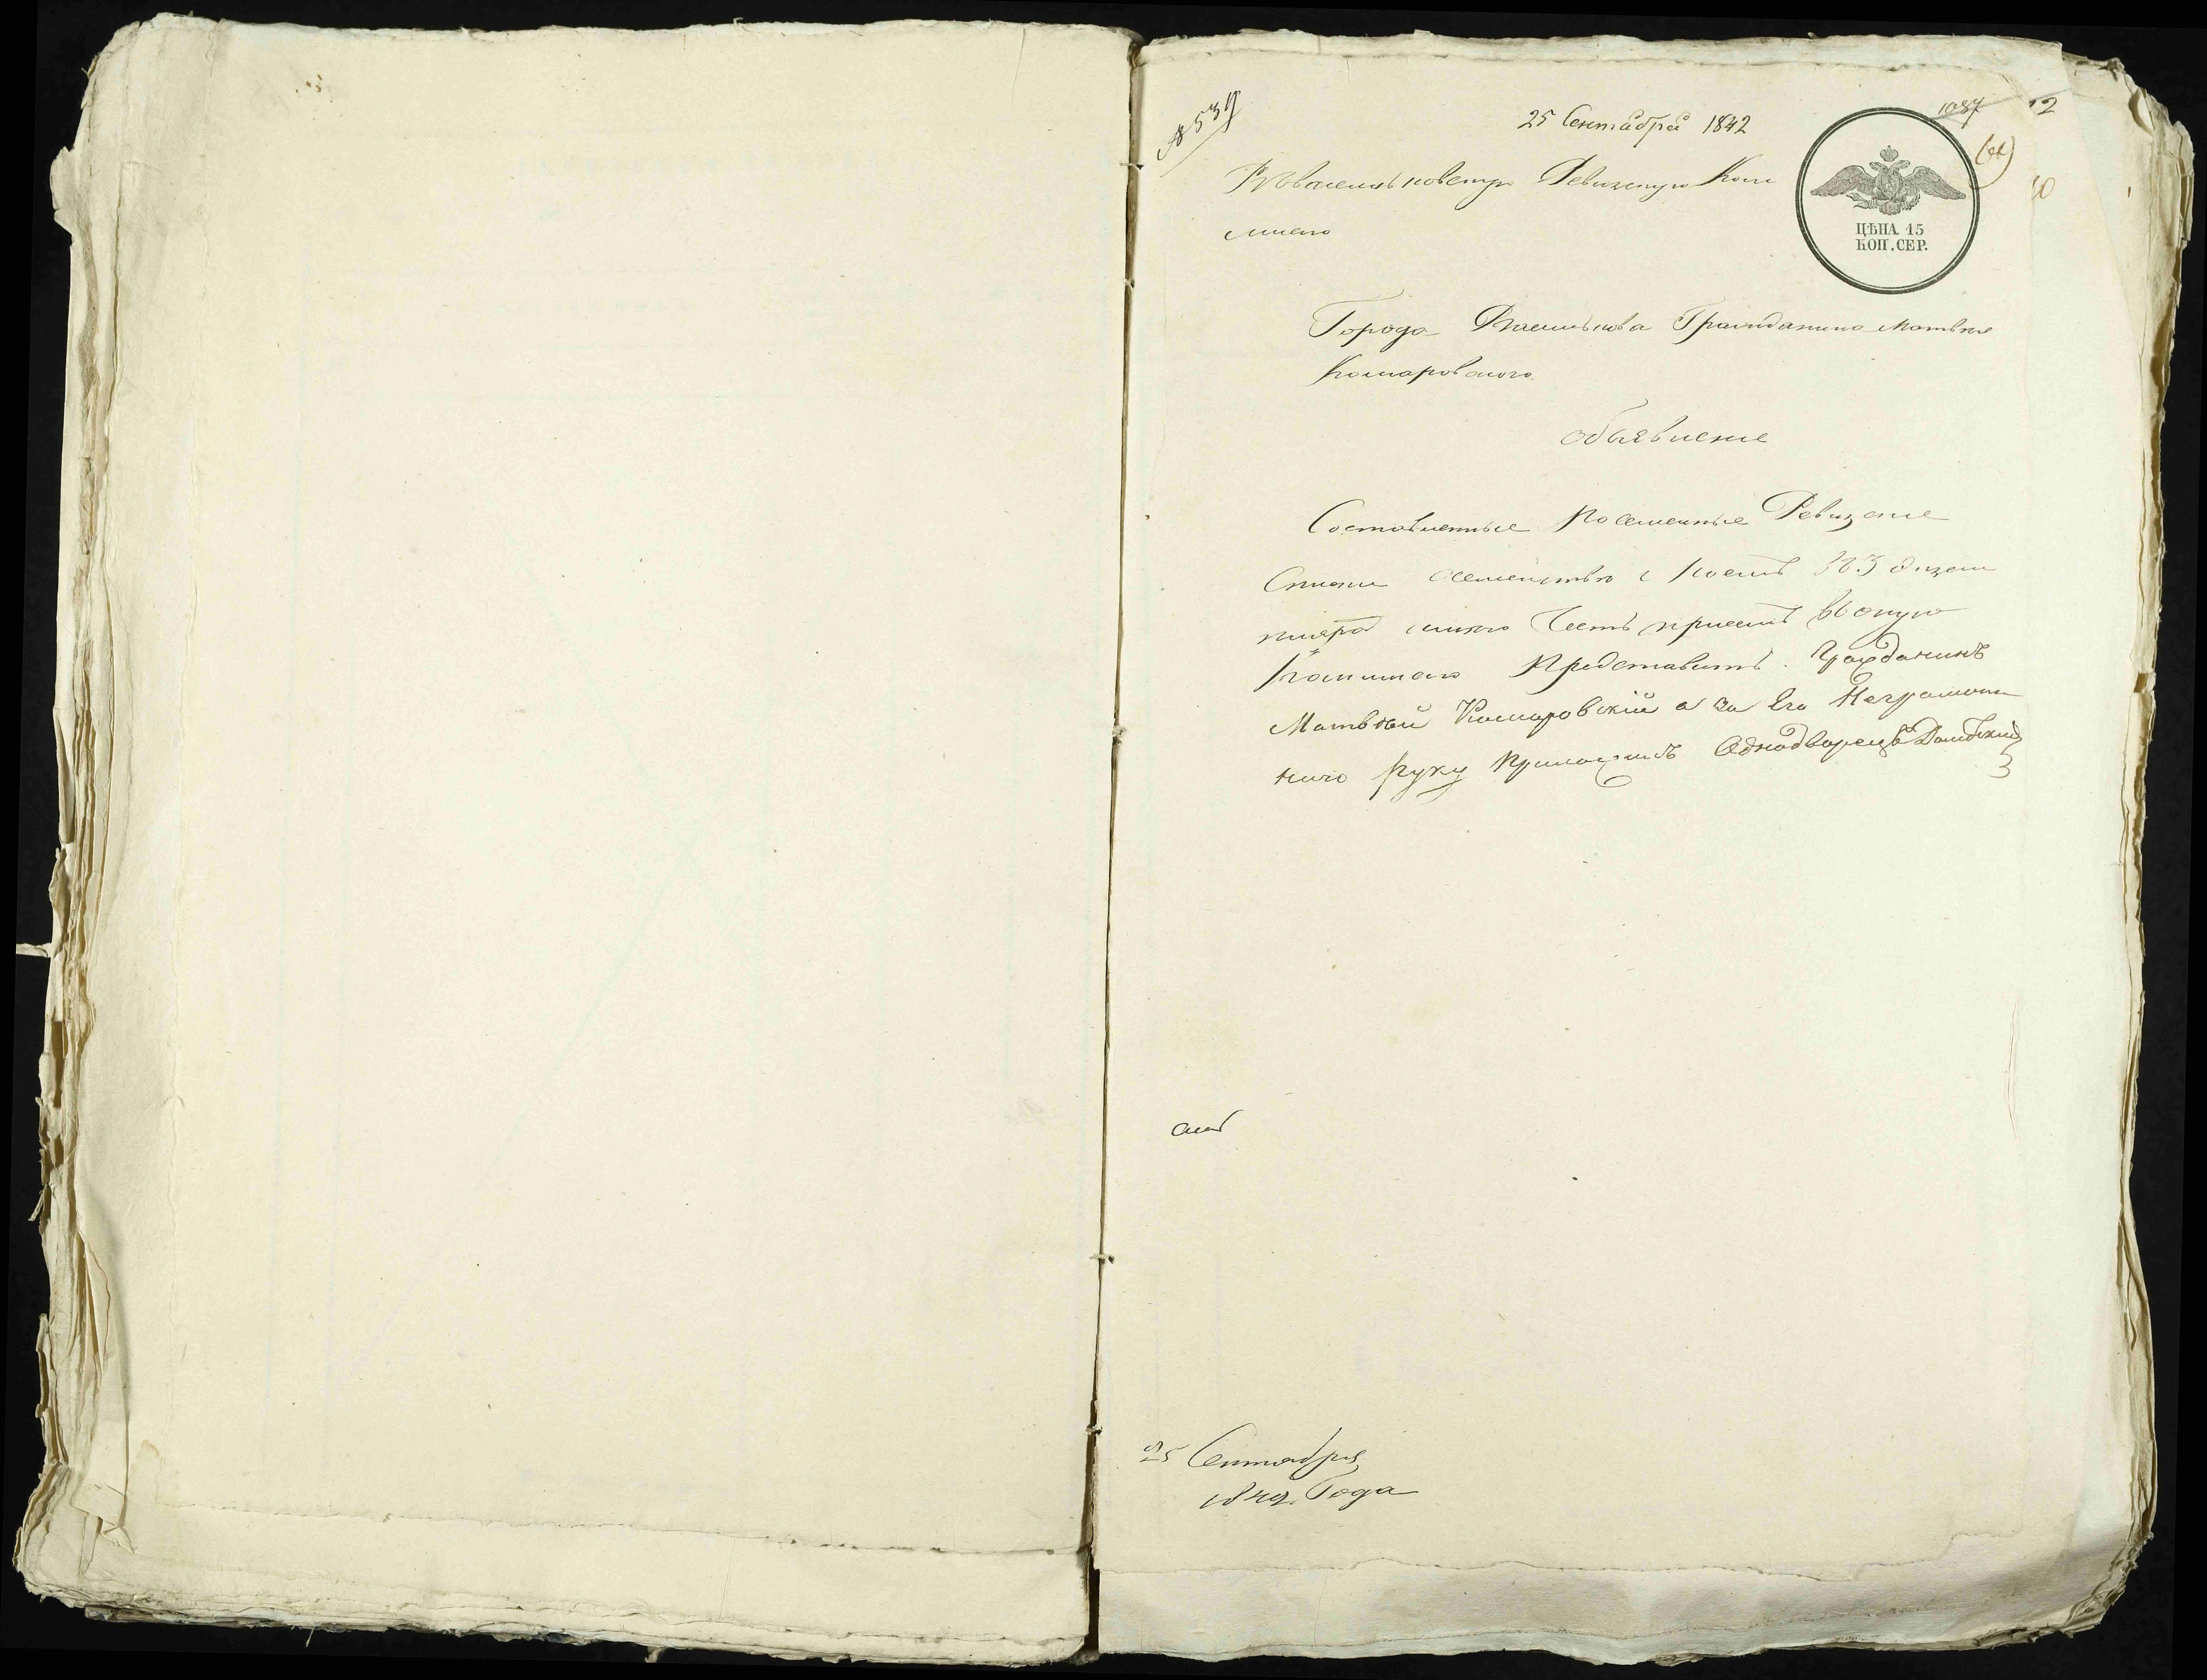 № 539
25 Сентября 1842
1087
12
ЦѢНА 15
КОП. СЕР.
Въ Васильковскую Ревизскую Ком
мисію
Города Василькова Гражданина Матвея
Комаровского
объявление
Составленные Посемейные Ревизские
Списки семейству
Честь имею въ оную
Комисию Представить. Гражданинъ
Матвей Комаровский а за Его Неграмот
ного Руку Приложилъ Однодворецъ Домбский
25 Сентября
1842 Года